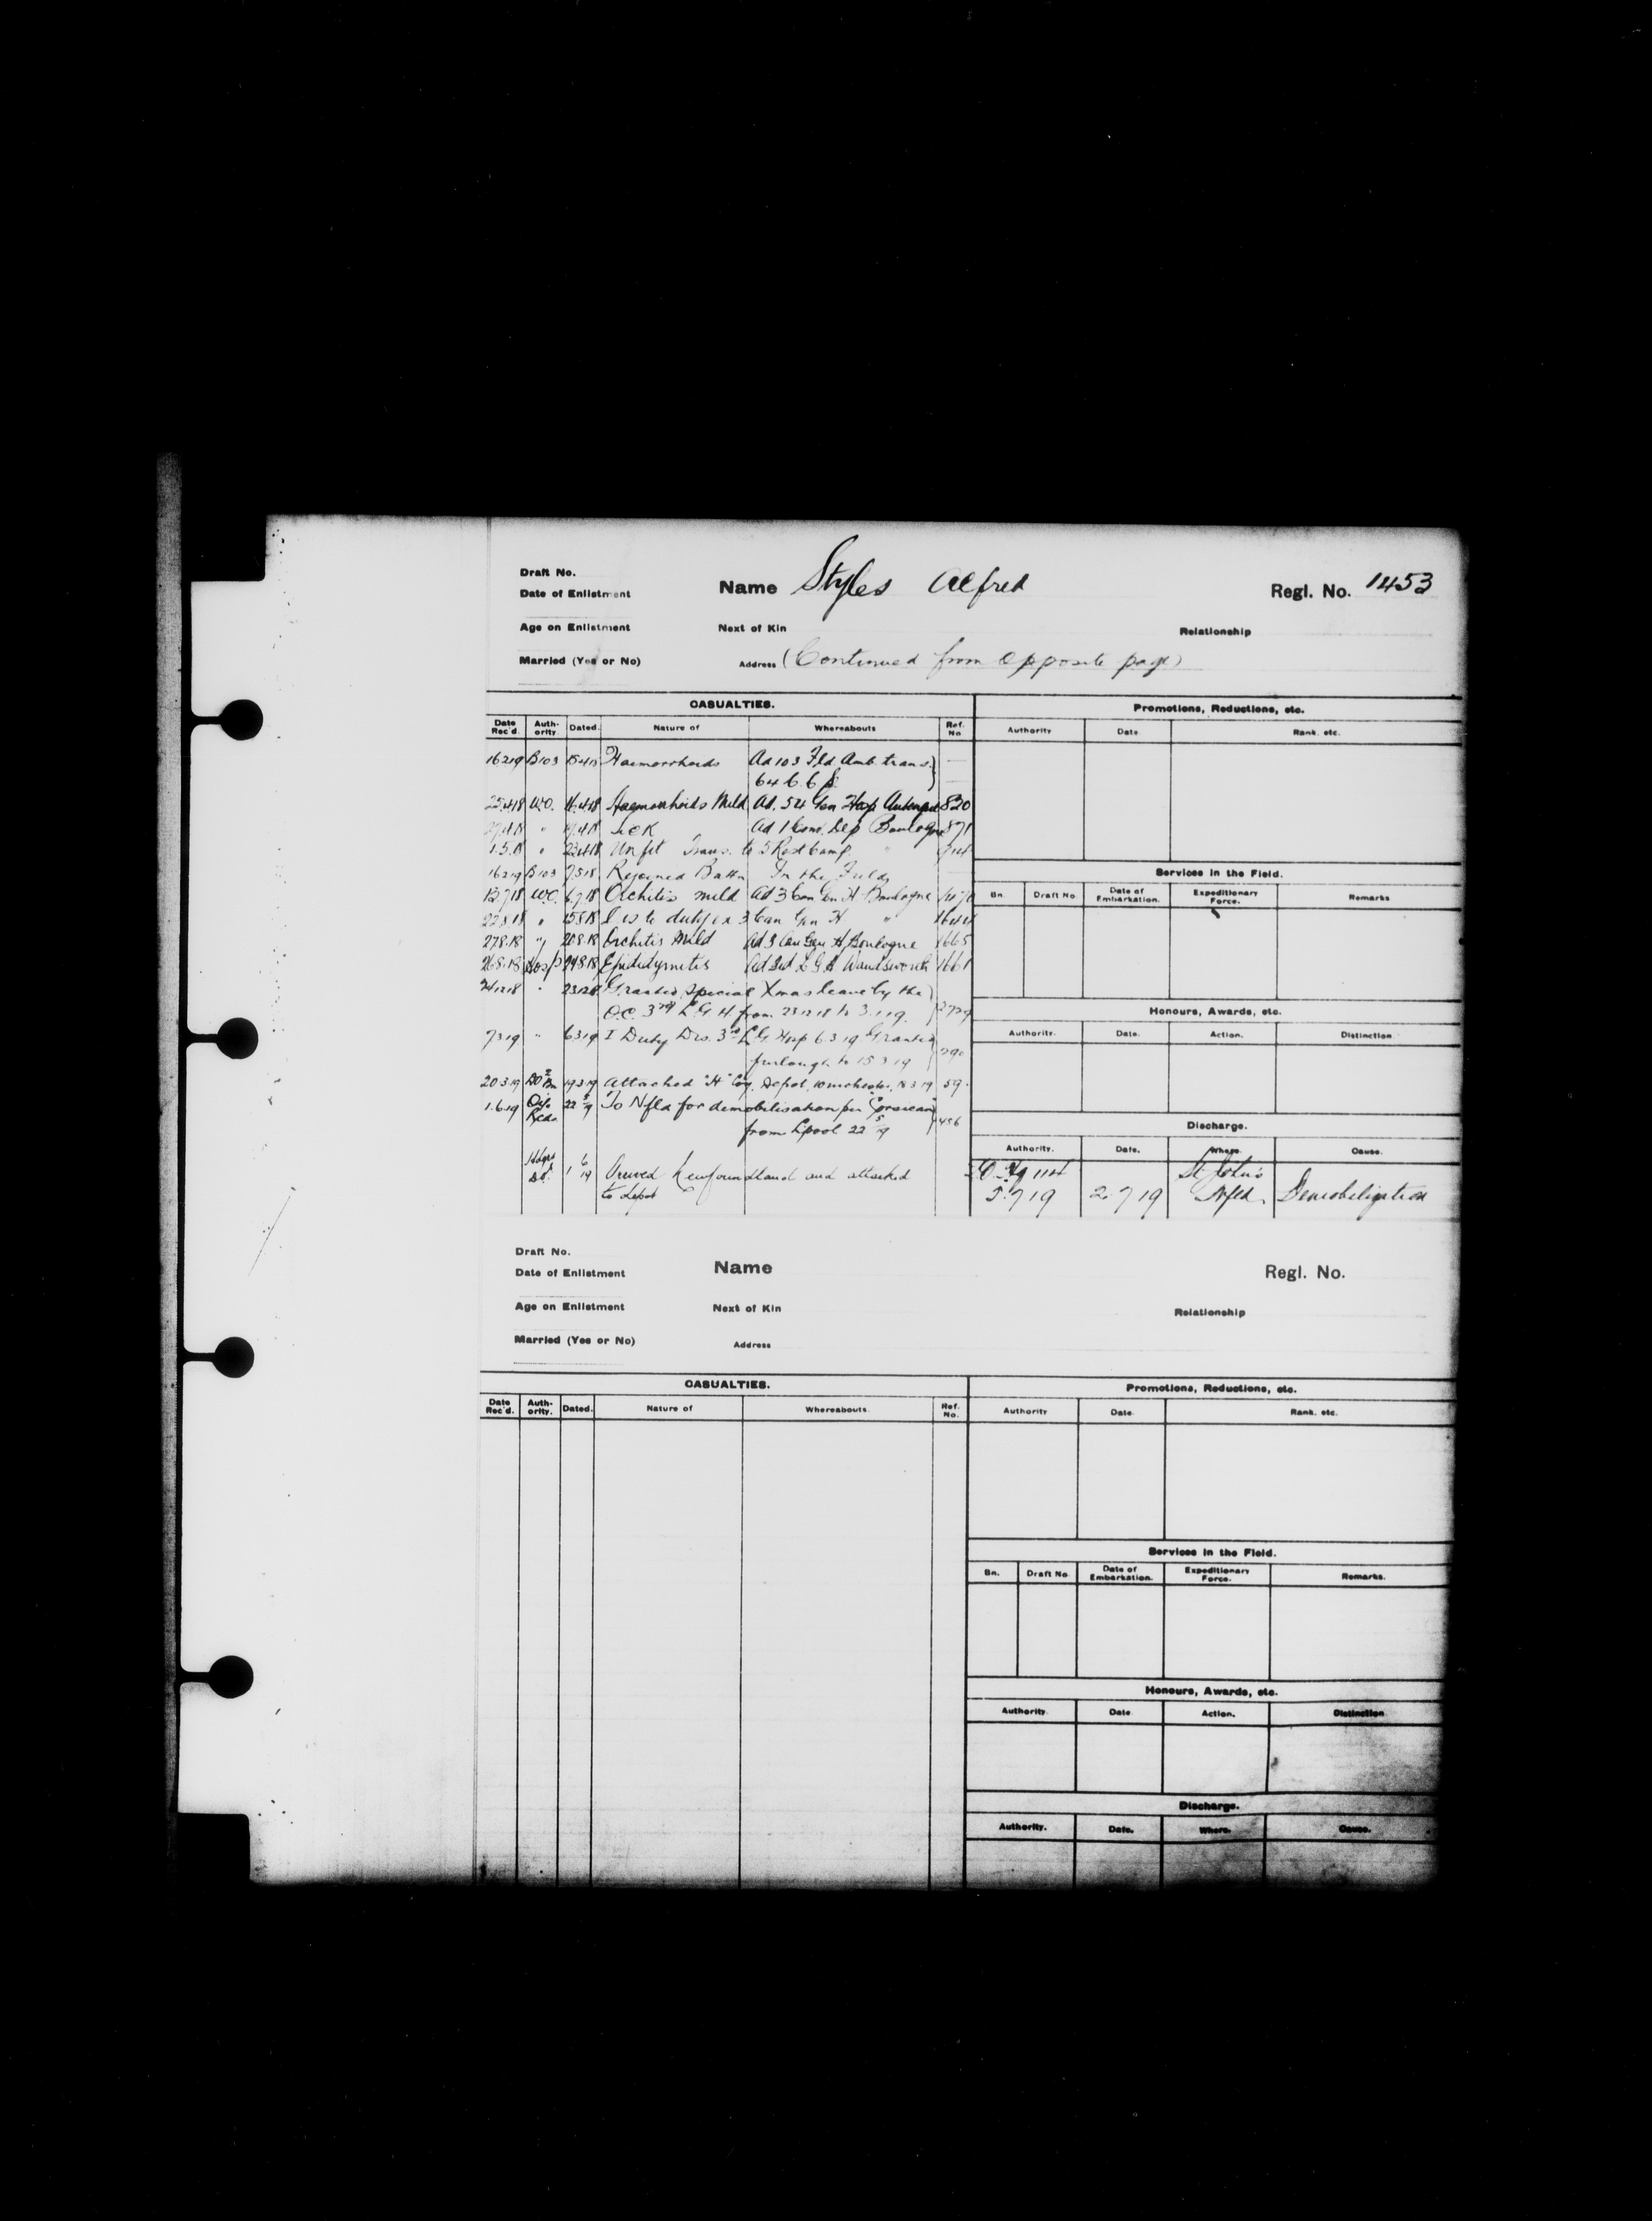 Draft No.
Date of Enlistment
Name Styles Alfred
Regl. No. 1453
Age on Enlistment
Next of Kin
Relationship
Married (Yes or No)
Address (Continued from opposite page)
CASUALTIES.
Date Rec'd. Auth-ority. Dated. Nature of Whereabouts Ref. No
16219 B103 15418 Haemorrhoids Ad 103 Fld Amb trans.
64 C.C.S.
25418 WO. 16418 Haemorrhoids Mild Ad. 54 Gen Hosp 820
" Sick Ad 1 Conv. Dep Boulogne 871
1.5.18 " 23418 Unfit Trans. to 5 Rest Camp "
16219 B103 7518 Rejoined Battn In the Field
13718 WO. 6718 Orchitis mild Ad 3 Can Gen H Boulogne
22818 " 15818 Dis to duty ex 3 Can Gen H "
27818 " 20818 Orchitis Mild Ad 3 Can Gen H Boulogne 1665
26818 Hosp 24818 Epididymitis Ad 3rd L G H Wandsworth 1661
241218 " 231218 Granted special Xmas leave by the
O.C. 3rd L.G.H. from 231218 to 3.1.19. 2729
7319 " 6319 I Duty Dis. 3rd L G Hosp 6 3 19 Granted
furlough to 15 3 19 790
20319 19319 Attached "H" Coy. Depot, Winchester, 18 3 19 59.
1.6.19 22 5/19 To Nfld for demobilisation per "Corsican"
from Lpool 22 5/19 456
Hdqrs 1 6/19 Arrived Newfoundland and attached
to depot
Promotions, Reductions, etc.
Authority Date Rank. etc.
Services in the Field.
Bn. Draft No Date of Embarkation. Expeditionary Force. Remarks
Honours, Awards, etc.
Authority. Date. Action. Distinction
Discharge.
Authority. Date. Where. Cause.
St John's
5.7 19 2.7 19 Nfld. Demobilization
Draft No.
Date of Enlistment
Name
Regl. No.
Age on Enlistment
Next of Kin
Relationship
Married (Yes or No)
Address
CASUALTIES.
Date Rec'd. Auth-ority. Dated. Nature of Whereabouts. Ref. No.
Promotions, Reductions, etc.
Authority Date Rank. etc.
Services in the Field.
Bn. Draft No Date of Embarkation. Expeditionary Force. Remarks.
Honours, Awards, etc.
Authority. Date. Action. Distinction
Discharge.
Authority. Date. Where. Cause.